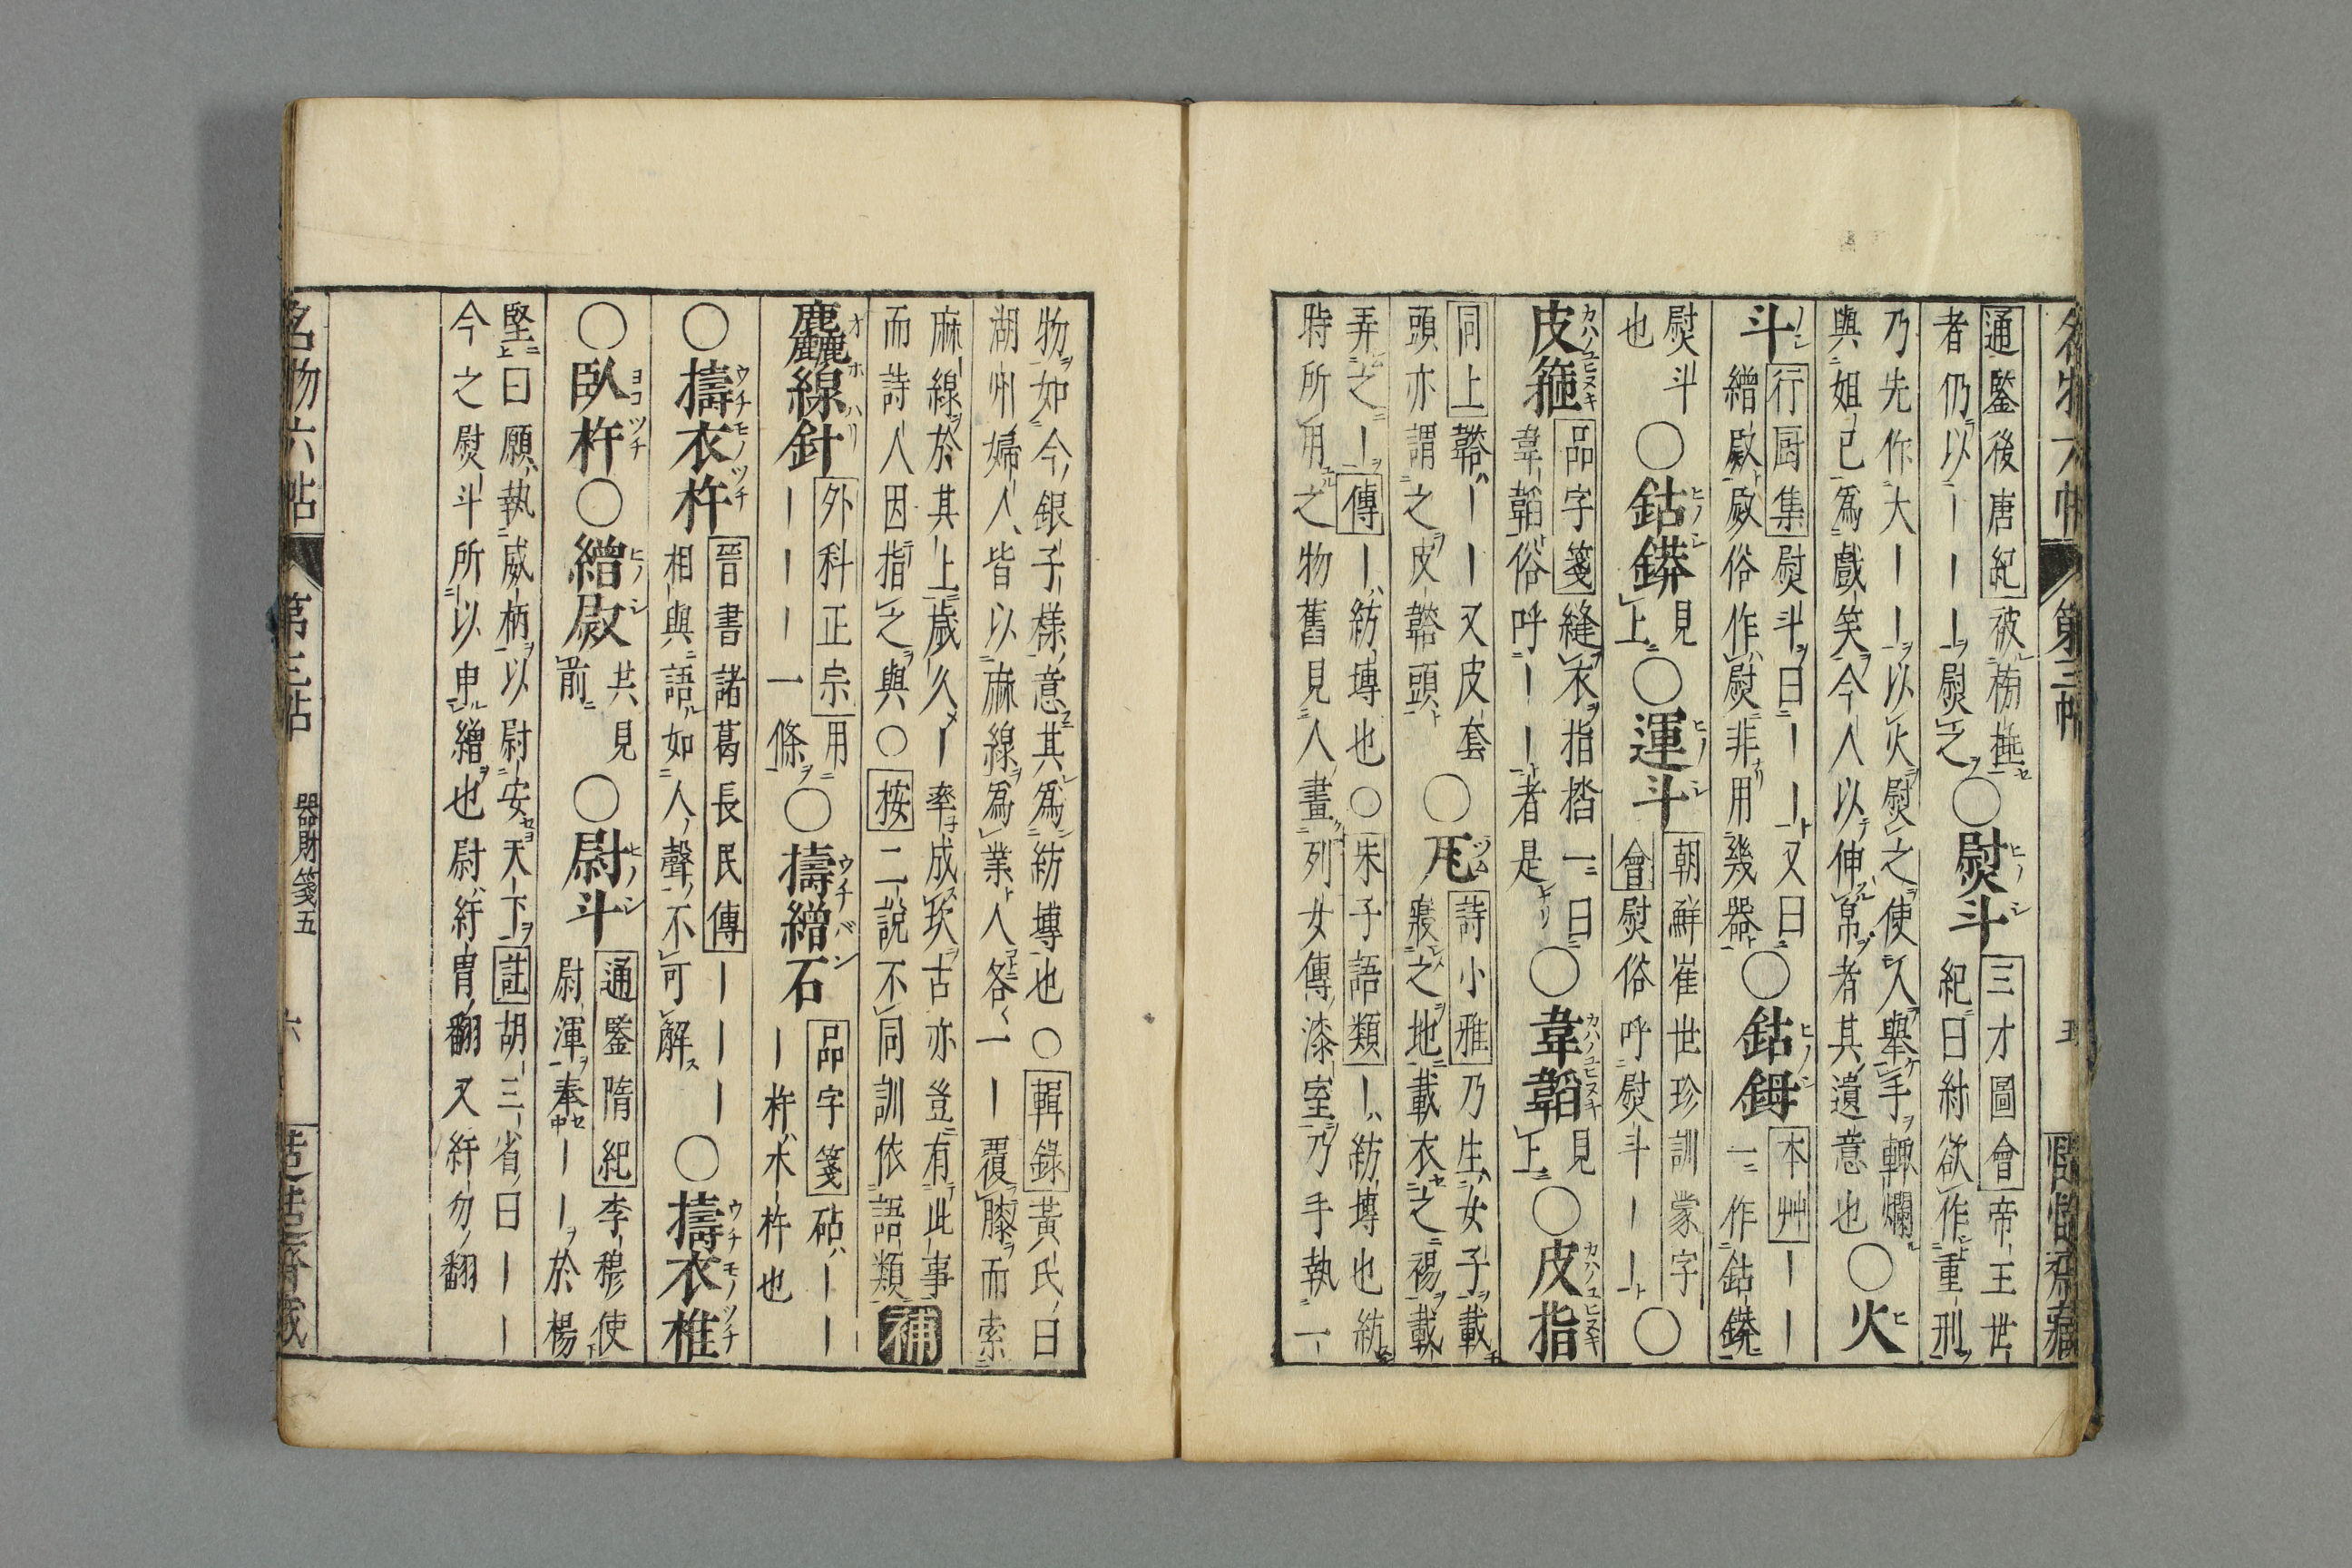 名物六帖　第三帖
通鑒後唐紀被榜掠
者仍以｜｜｜熨之
○熨斗
三才圖會帝王世
紀曰紂欲作重刑
乃先作大｜｜以火熨之使人舉手輙爛
與妲己為戲笑今人以伸帛者其遺意也
○火
斗
行厨集熨斗曰｜｜又曰
繒㷉㷉俗作熨非用幾器
○鈷䥈
本艸｜｜
一作鈷鏻
熨斗
也
○鈷䥈
見
上
○運斗
朝鮮崔世珍訓蒙字
會熨俗呼熨斗｜｜
○
皮箍
品字箋縫衣指揸一曰
韋韜俗呼｜｜者是
○韋韜
見
上
○皮指
同上鞳｜｜又皮套
頭亦謂之皮鞳頭
○瓦
詩小雅乃生女子載
寢之地載衣之裼載
弄之｜傳｜紡塼也○朱子語類｜紡塼也紡
時所用之物舊見人畫列女傳漆室乃手執一
物如今銀子樣意其為紡塼也○輯錄黃氏曰
湖州婦人皆以麻線為業人各一｜覆膝而索
麻線於其上歲久｜率成坎古亦豈有此事
而詩人因指之與○按二說不同訓依語類補
麤線針
外科正宗用
｜｜｜一條
○擣繒石
品字箋砧｜｜
｜杵木杵也
○擣衣杵
晉書諸葛長民傳｜｜｜
相與語如人聲不可解
○擣衣椎
○臥杵○繒㷉
共見
前
○尉斗
通鑒隋紀李穆使
尉渾奉｜｜於楊
堅曰願執威柄以尉安天下註胡三省曰｜｜
今之熨斗所以申繒也尉紆胃翻又紆勿翻
名物六帖　第三帖　器財箋五　六